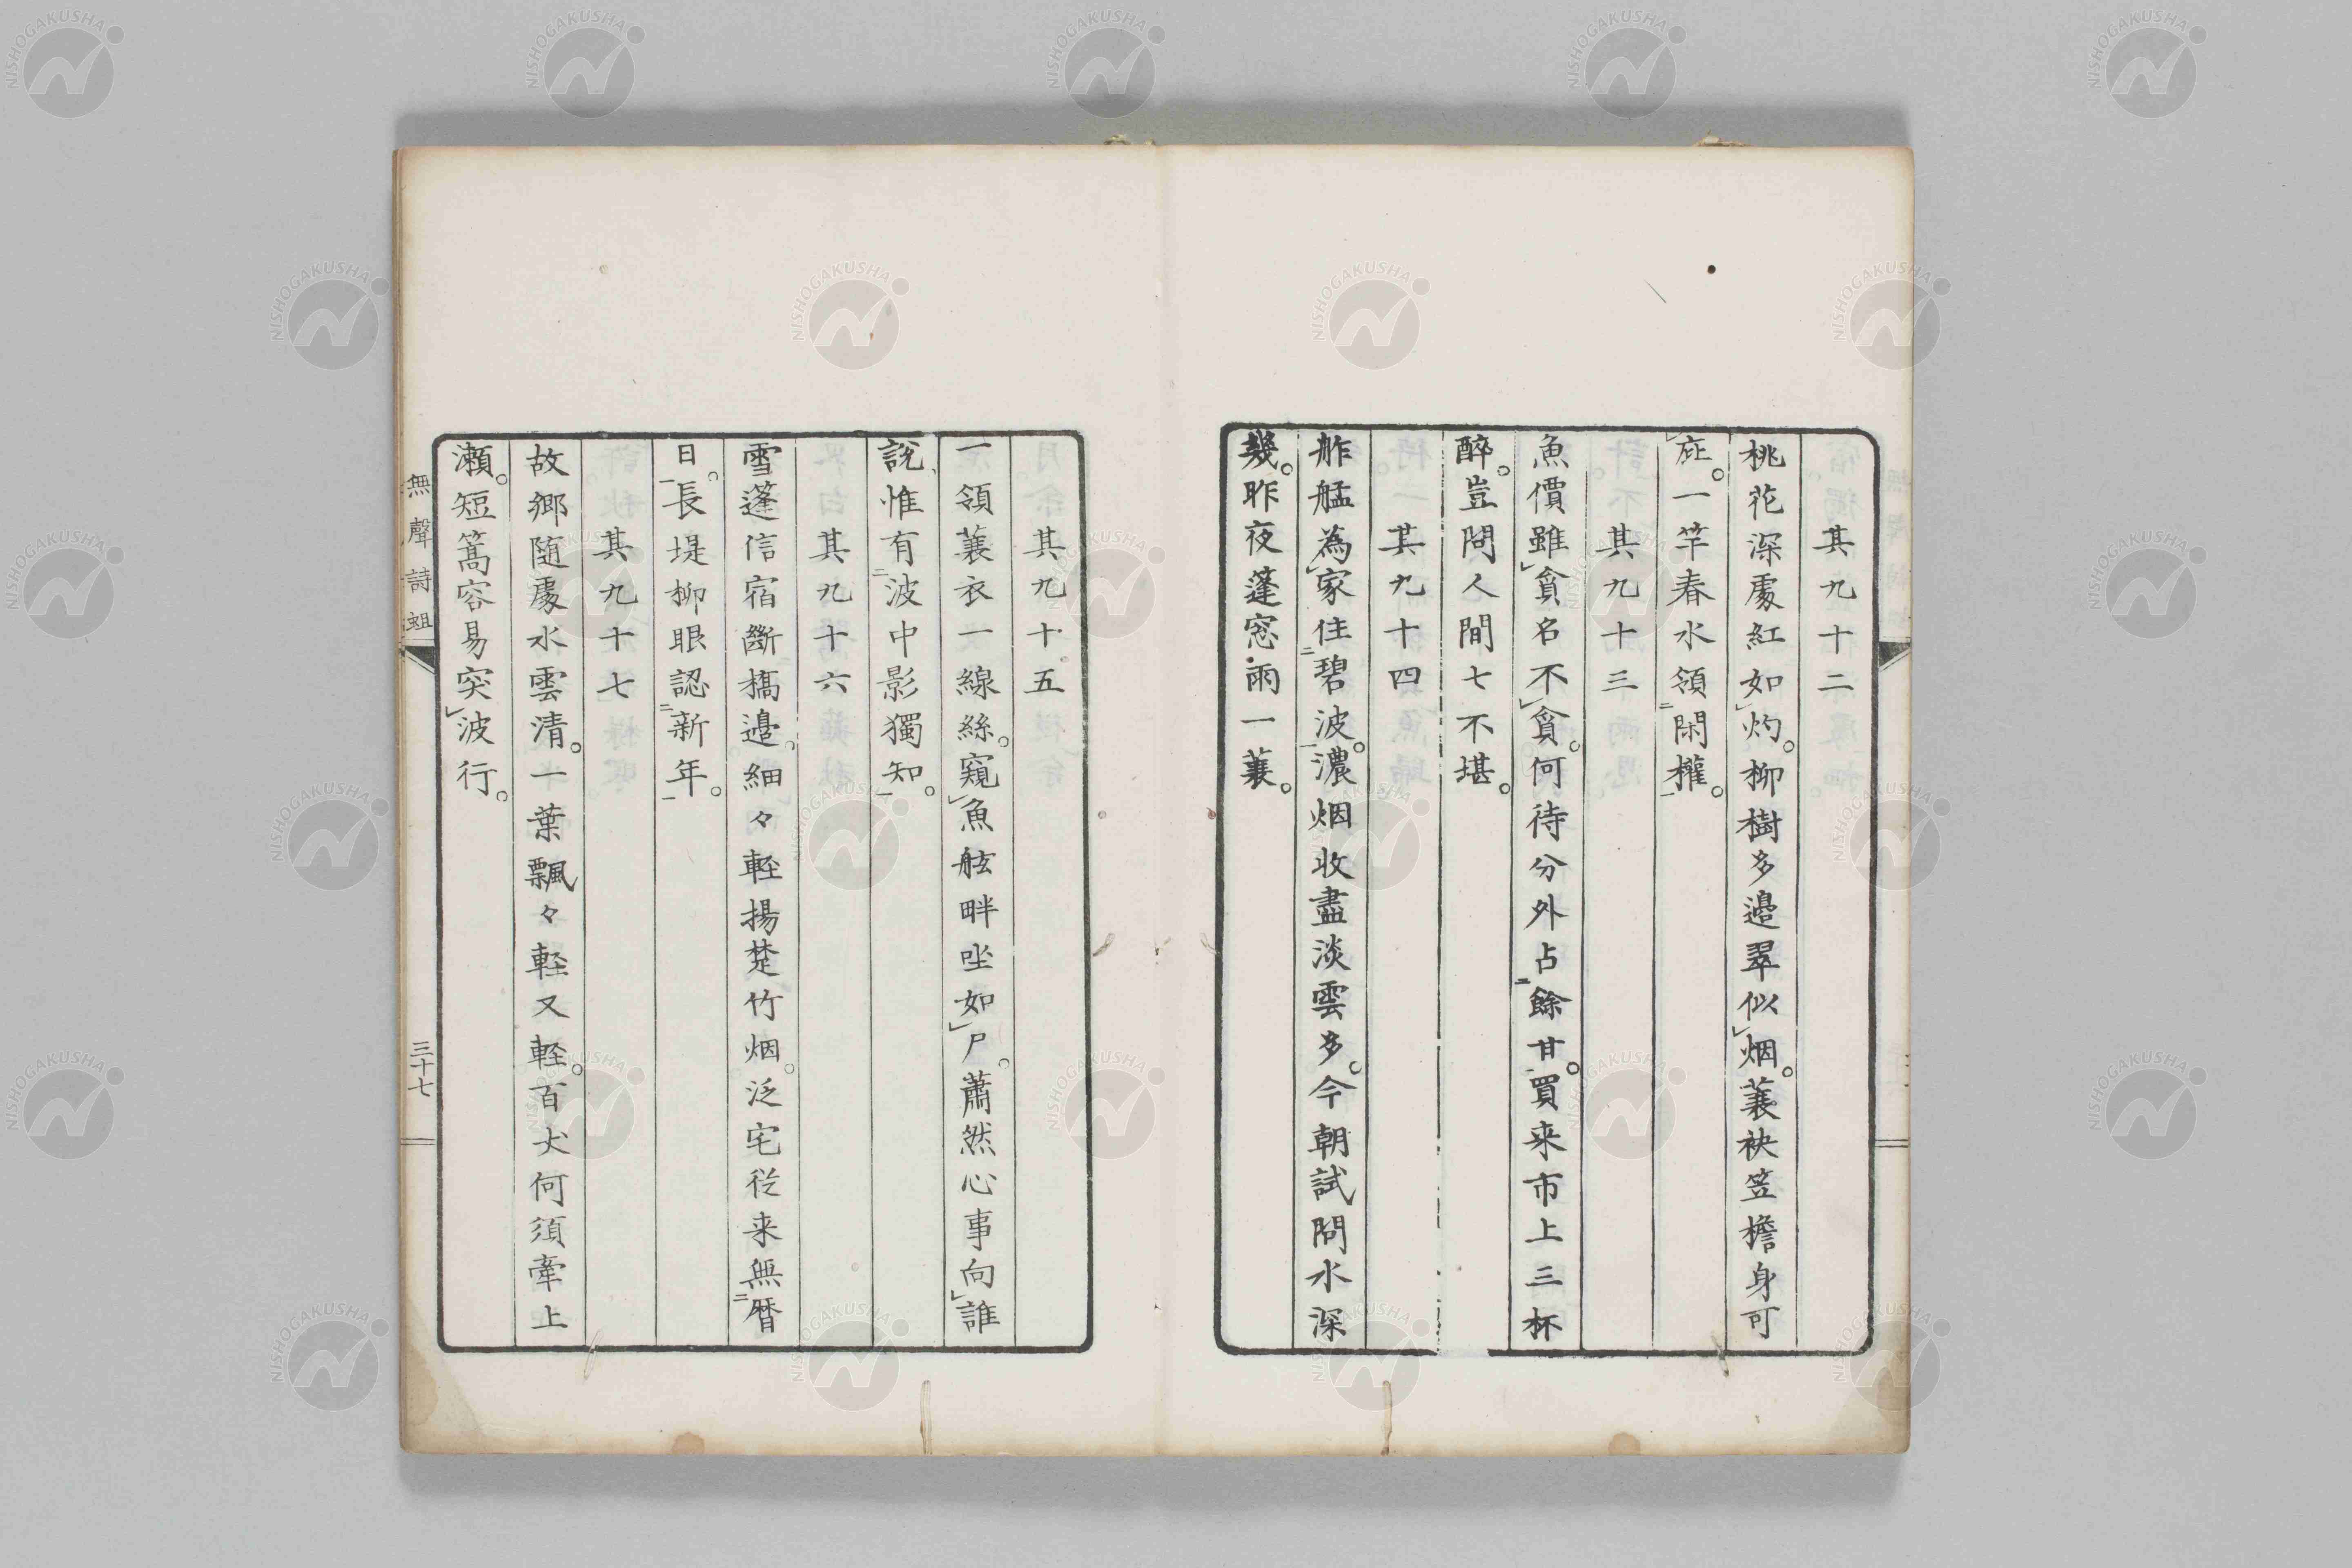 其九十二
桃花深處紅如灼。柳樹多邊翠似烟。蓑袂笠檐身可
庇。一竿春水領閑權。
其九十三
魚價雖貧名不貧。何待分外占餘甘。買来市上三杯
醉。豈問人間七不堪。
其九十四
舴艋為家住碧波。濃烟收盡淡雲多。今朝試問水深
幾。昨夜蓬窓雨一蓑。
其九十五
一領蓑衣一線絲。窺魚舷畔坐如尸。蕭然心事向誰
說、惟有波中影獨知。
其九十六
雪蓬信宿斷橋邉。細々軽揚楚竹烟。泛宅従来無暦
日。長堤柳眼認新年。
其九十七
故郷随處水雲清。一葉飄々軽又軽。百丈何須牽上
瀬。短篙容易突波行。
無聲詩
三十七
NISHOGAKUSHA